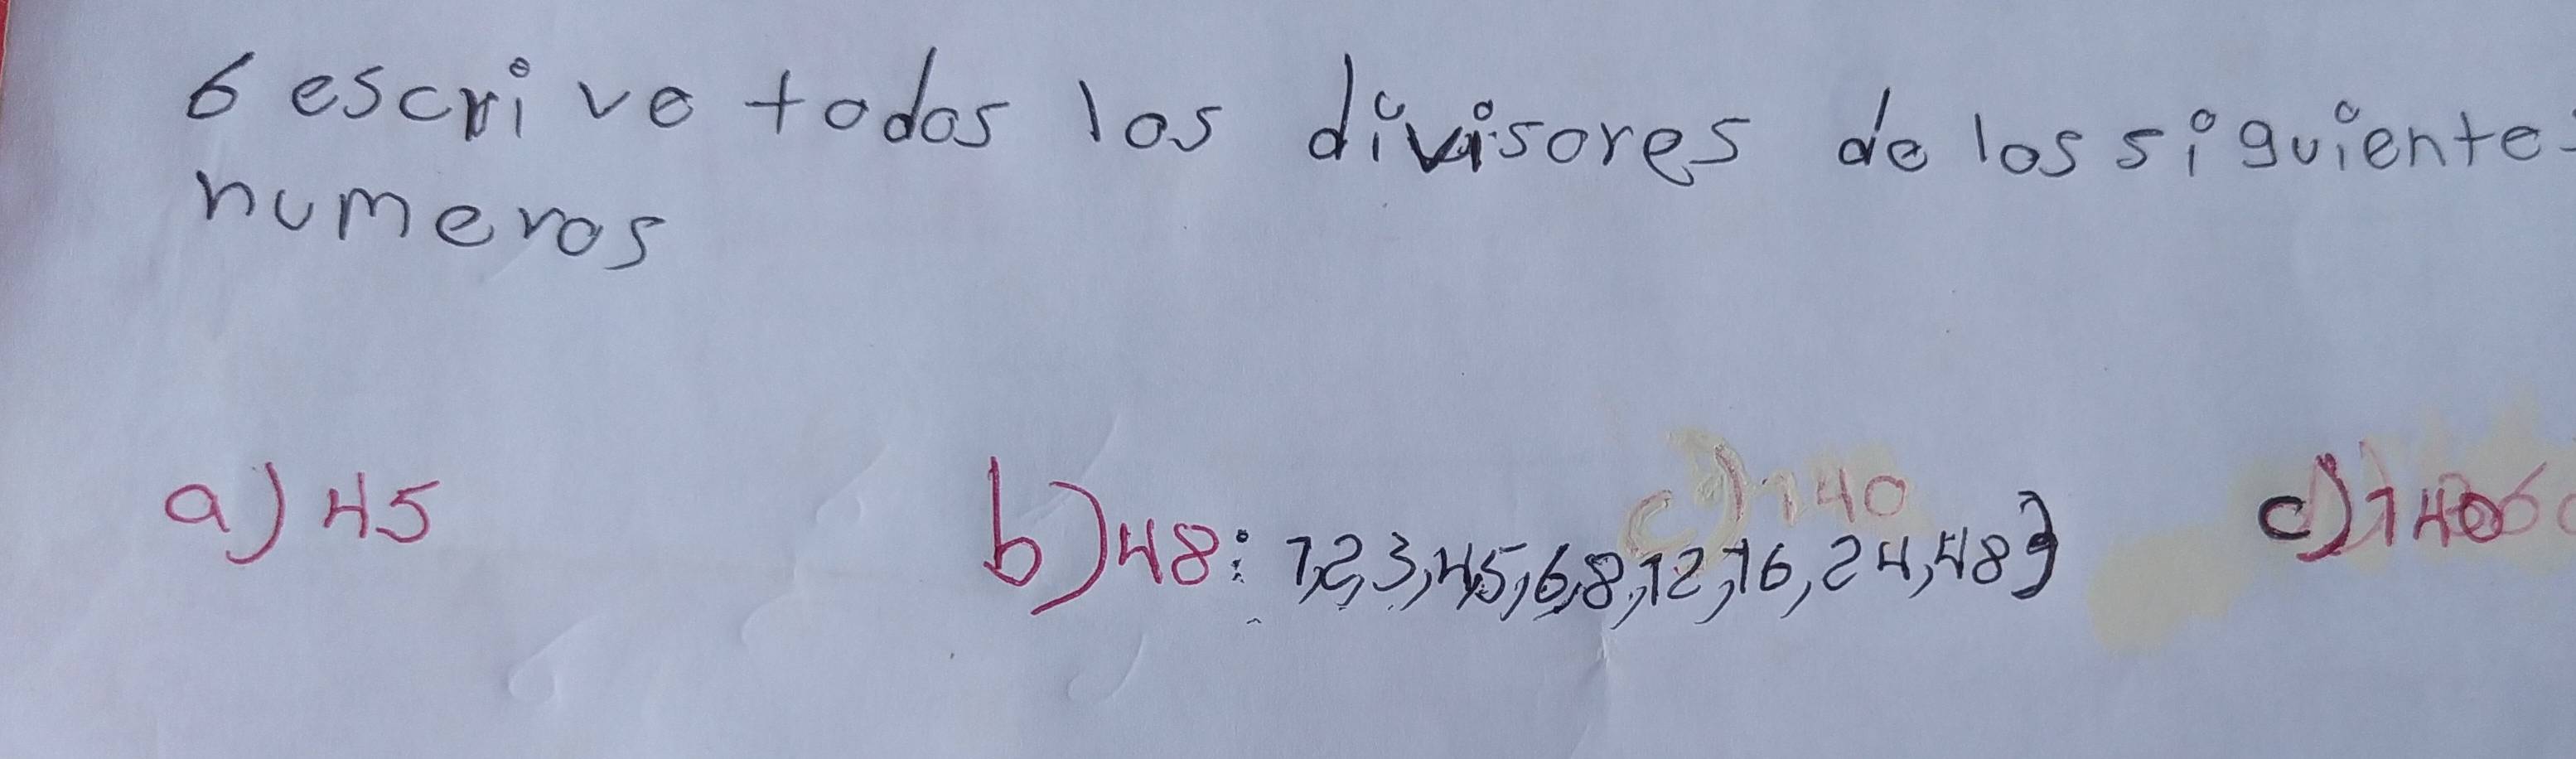 6 escrive todos los divisores de los siguientes
numeros
a) 45 b) 48: 1,2,3,4,5,6,8,12,16,24,48} c) 140
c) 140